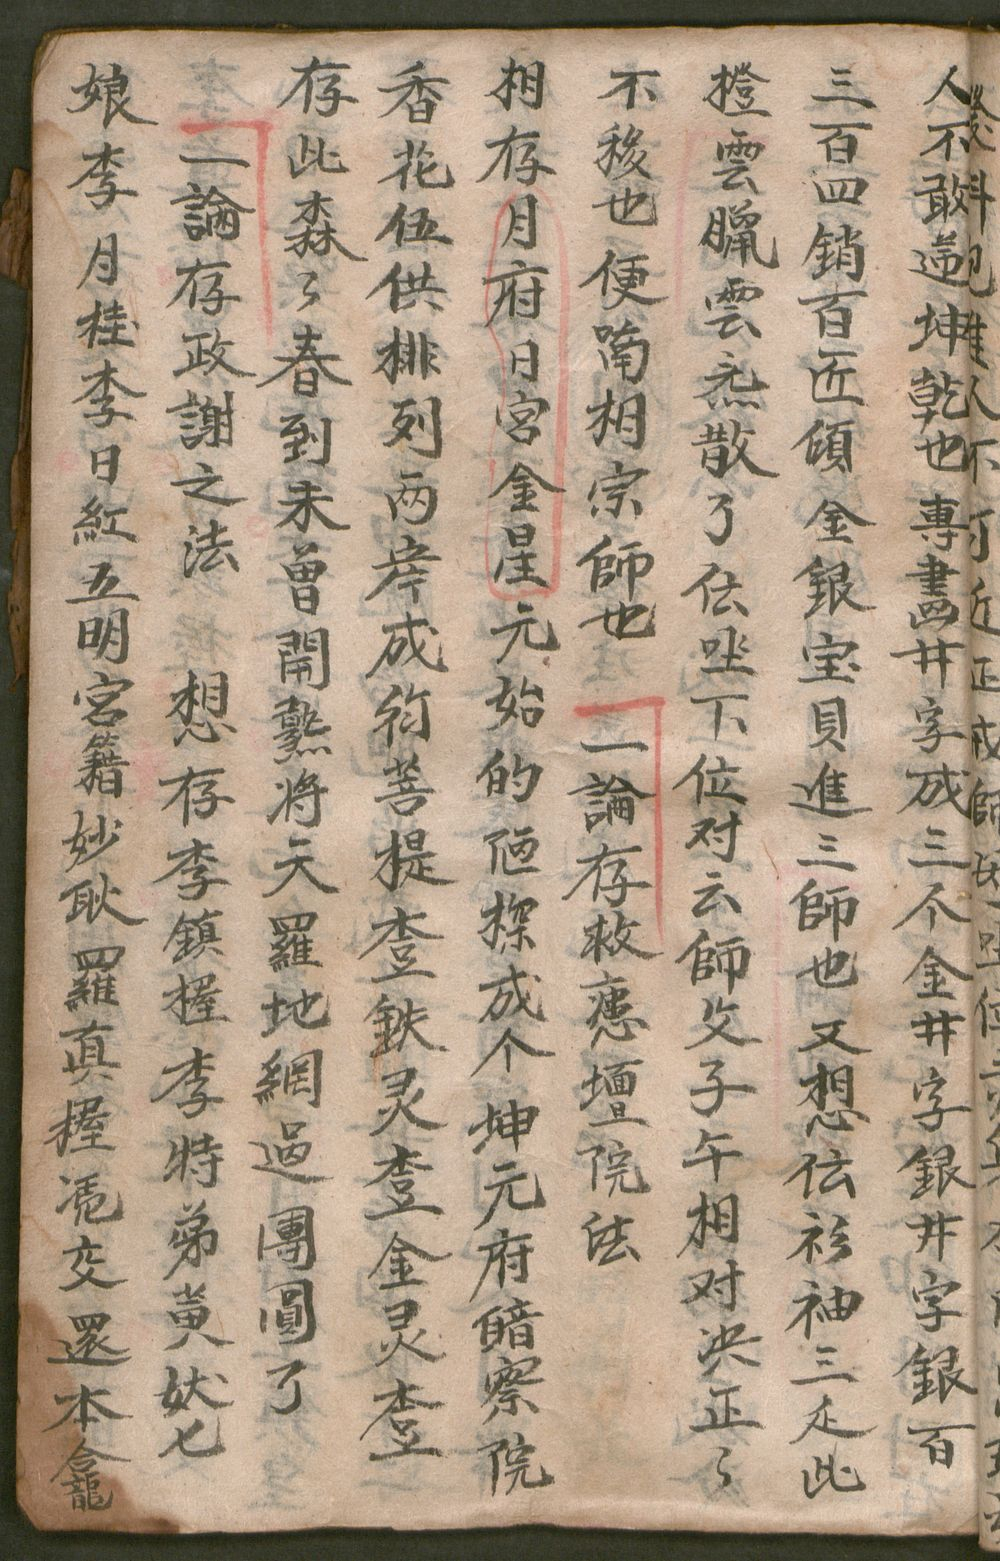 人不敢過坤乾也專晝井字成三个金井字銀井字銀百
三百四銷百匠傾金銀宝貝進三師也又想伝衫袖三疋此
橙雲臘雲炁散了伝坐下位对云師父子午相对決正了
不移也便喃相宗師也 一論存救患壇院法
相存月府日宮金星元始的陋探成个坤元府暗察院
香花伍供排列兩岸成行菩提李鉄灵李金灵李
存此森了春到未曾開熱将天羅地網過團圓了
一論存政謝之法 想存李鎮握李特弟黄妖七
娘李月桂李日紅五明宮籍妙耿羅真握凴交還本